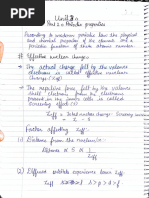 Unit 3
Part 2 :- Periodic properties
According to modern periodic law the physical
and chemical properties of the elements are a
periodic function of their atomic number.
# Effective nuclear charge :-
→ The actual charge felt by the valence
electron is called effective nuclear
charge (Zeff).
→ The repulsive force felt by the valence
shell electron from the electrons
present in the inner shells is called
Screening effect (S).
Zeff = Total nuclear charge - Screening
Zeff = Z - S
Factor affecting Zeff
1) Distance
Distance ∝ S ∝ 1/Zeff
2) Different orbitals experience diff. Zeff
Zeff s > p > d > f.